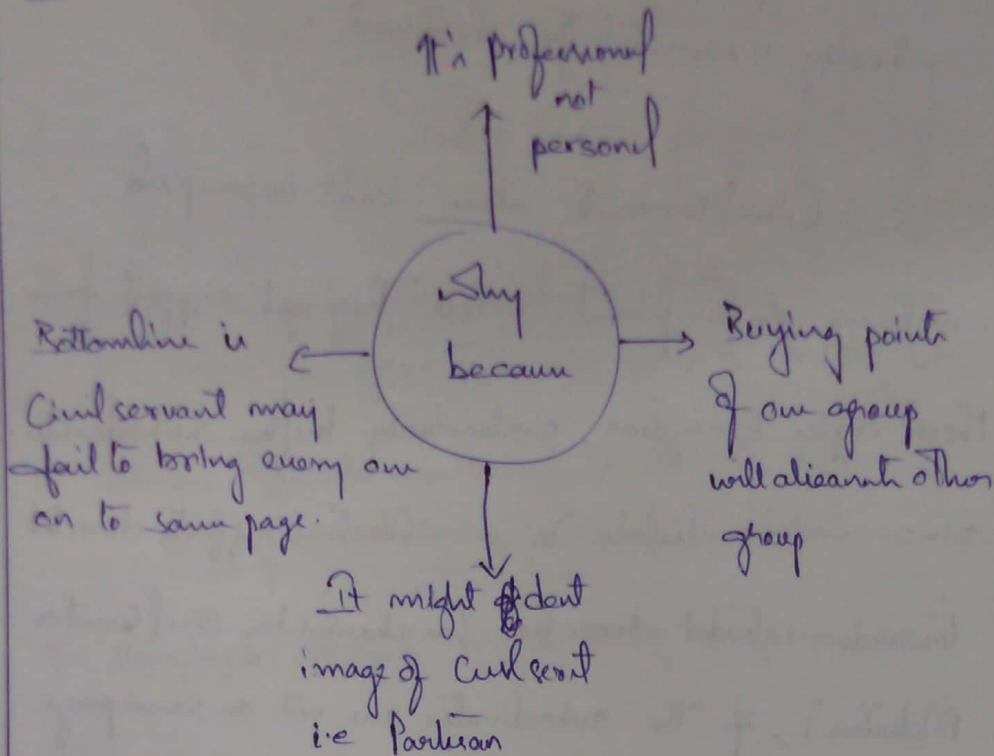 It's professional
not
personal
Why
because
Bottomline is
Civil servant may
fail to bring every one
on to same page.
Buying points
of one group
will alieanate other
group
It might dent
image of Civil servt
i.e Partisan